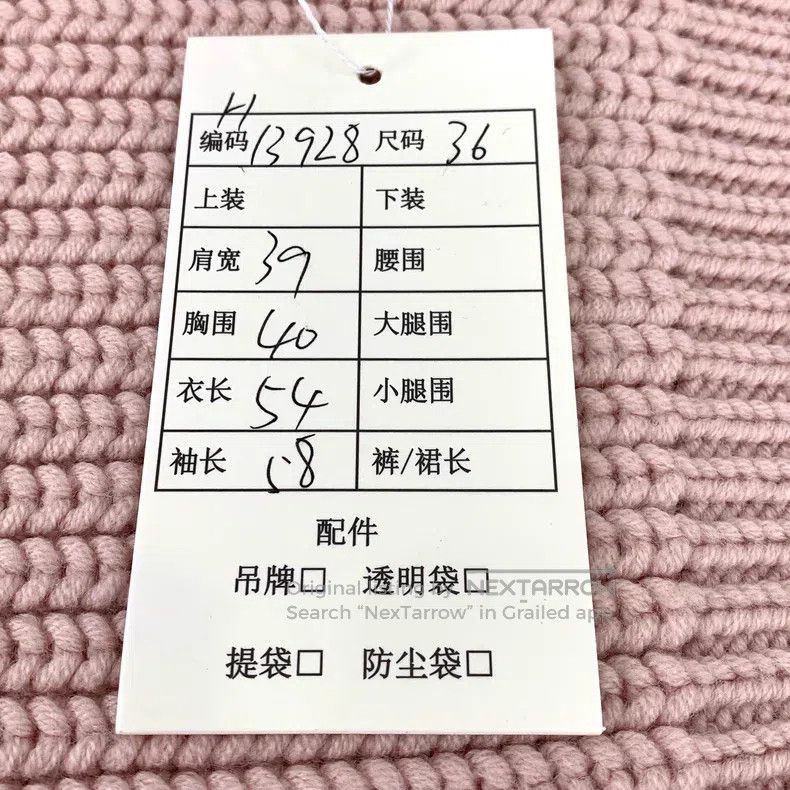 H
编码 13928 尺码 36
上装 下装
肩宽 39 腰围
胸围 40 大腿围
衣长 54 小腿围
袖长 58 裤/裙长
配件
吊牌□ 透明袋□
Original listing by NEXTARROW
Search “NexTarrow” in Grailed app
提袋□ 防尘袋□